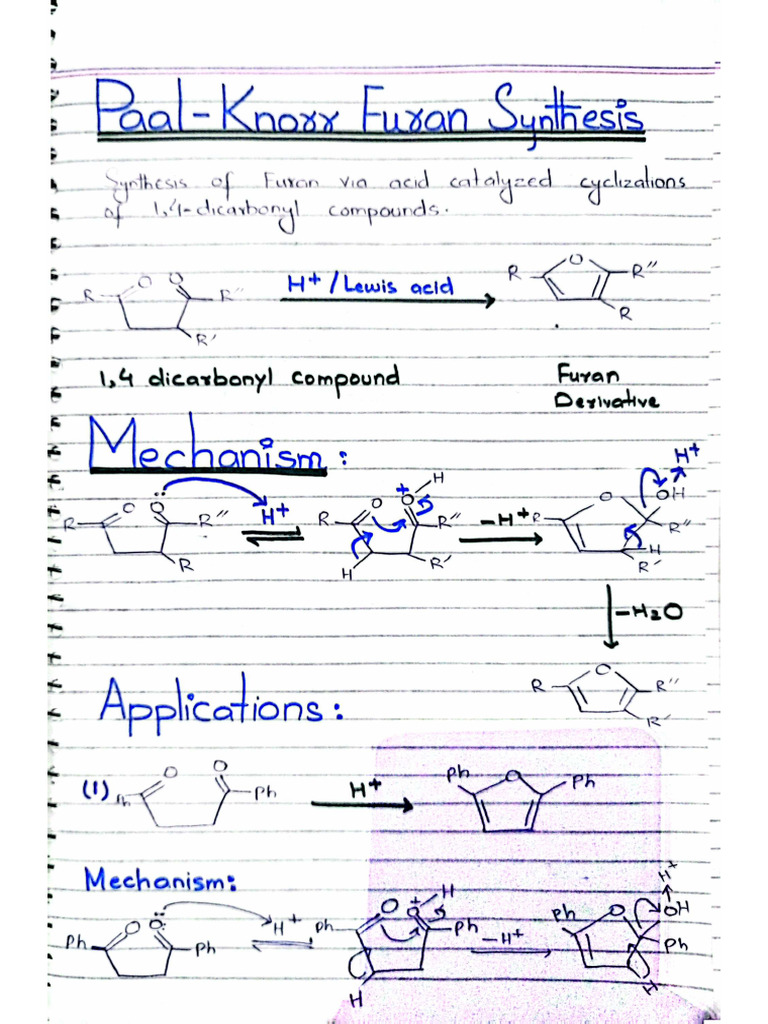 Paal-Knorr Furan Synthesis
Synthesis of Furan via acid catalyzed cyclizations
of 1,4-dicarbonyl compounds.
R O O R" R'
H+ / Lewis acid
R O R" R
1,4 dicarbonyl compound
Furan
Derivative
Mechanism:
R O O R" R
H+
R O O + H R" R' H
-H+
R O OH H+ R" H R'
-H2O
R O R" R'
Applications:
(1) Ph O O Ph
H+
Ph O Ph
Mechanism:
Ph O O Ph
H+
Ph O O + H Ph H
-H+
Ph O OH H+ Ph H